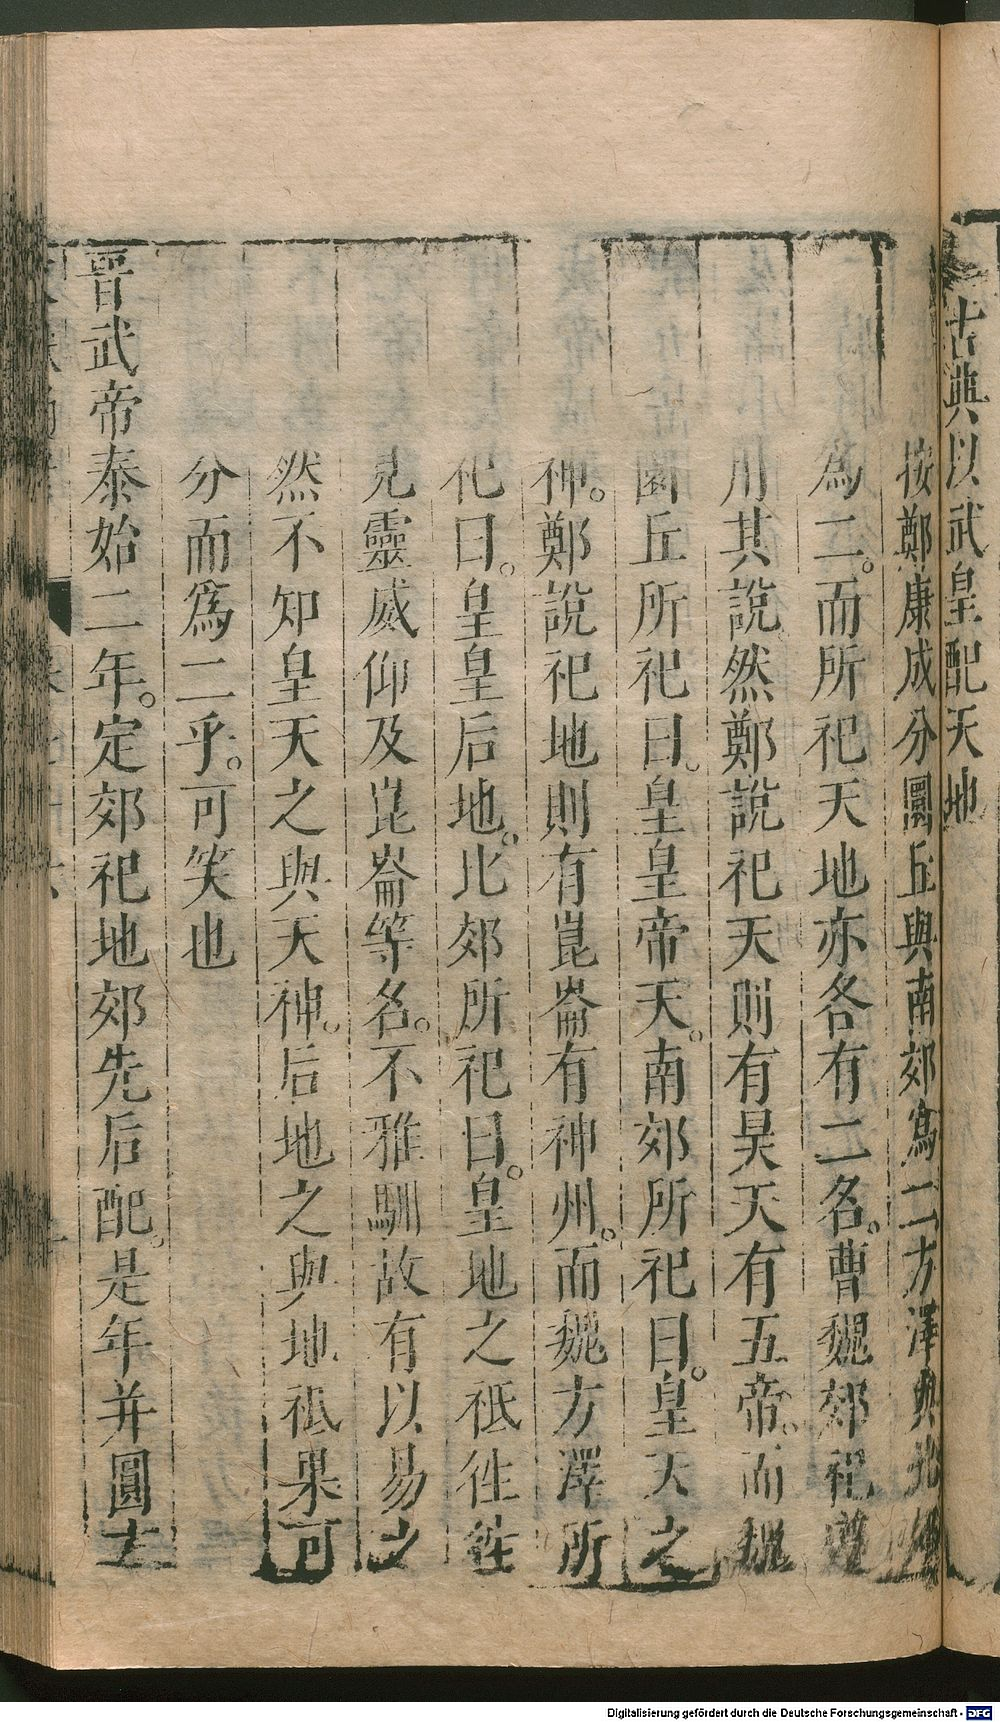 古典以武皇配天地
按鄭康成分圜丘與南郊爲二方澤與北郊
爲二。而所祀天地亦各有二名。曹魏郊祀遵
用其說然鄭說祀天則有昊天有五帝。而魏
園丘所祀曰。皇皇帝天。南郊所祀曰。皇天之
神。鄭說祀地則有崑崙有神州。而魏方澤所
祀曰。皇皇后地。北郊所祀曰。皇地之祗徃徃
見靈威仰及崑崙等名。不雅馴故有以易之
然不知皇天之與天神。后地之與地祗果可
分而爲二乎。可笑也
晋武帝泰始二年。定郊祀地郊先后配。是年并圓方
Digitalisierung gefördert durch die Deutsche Forschungsgemeinschaft - DFG